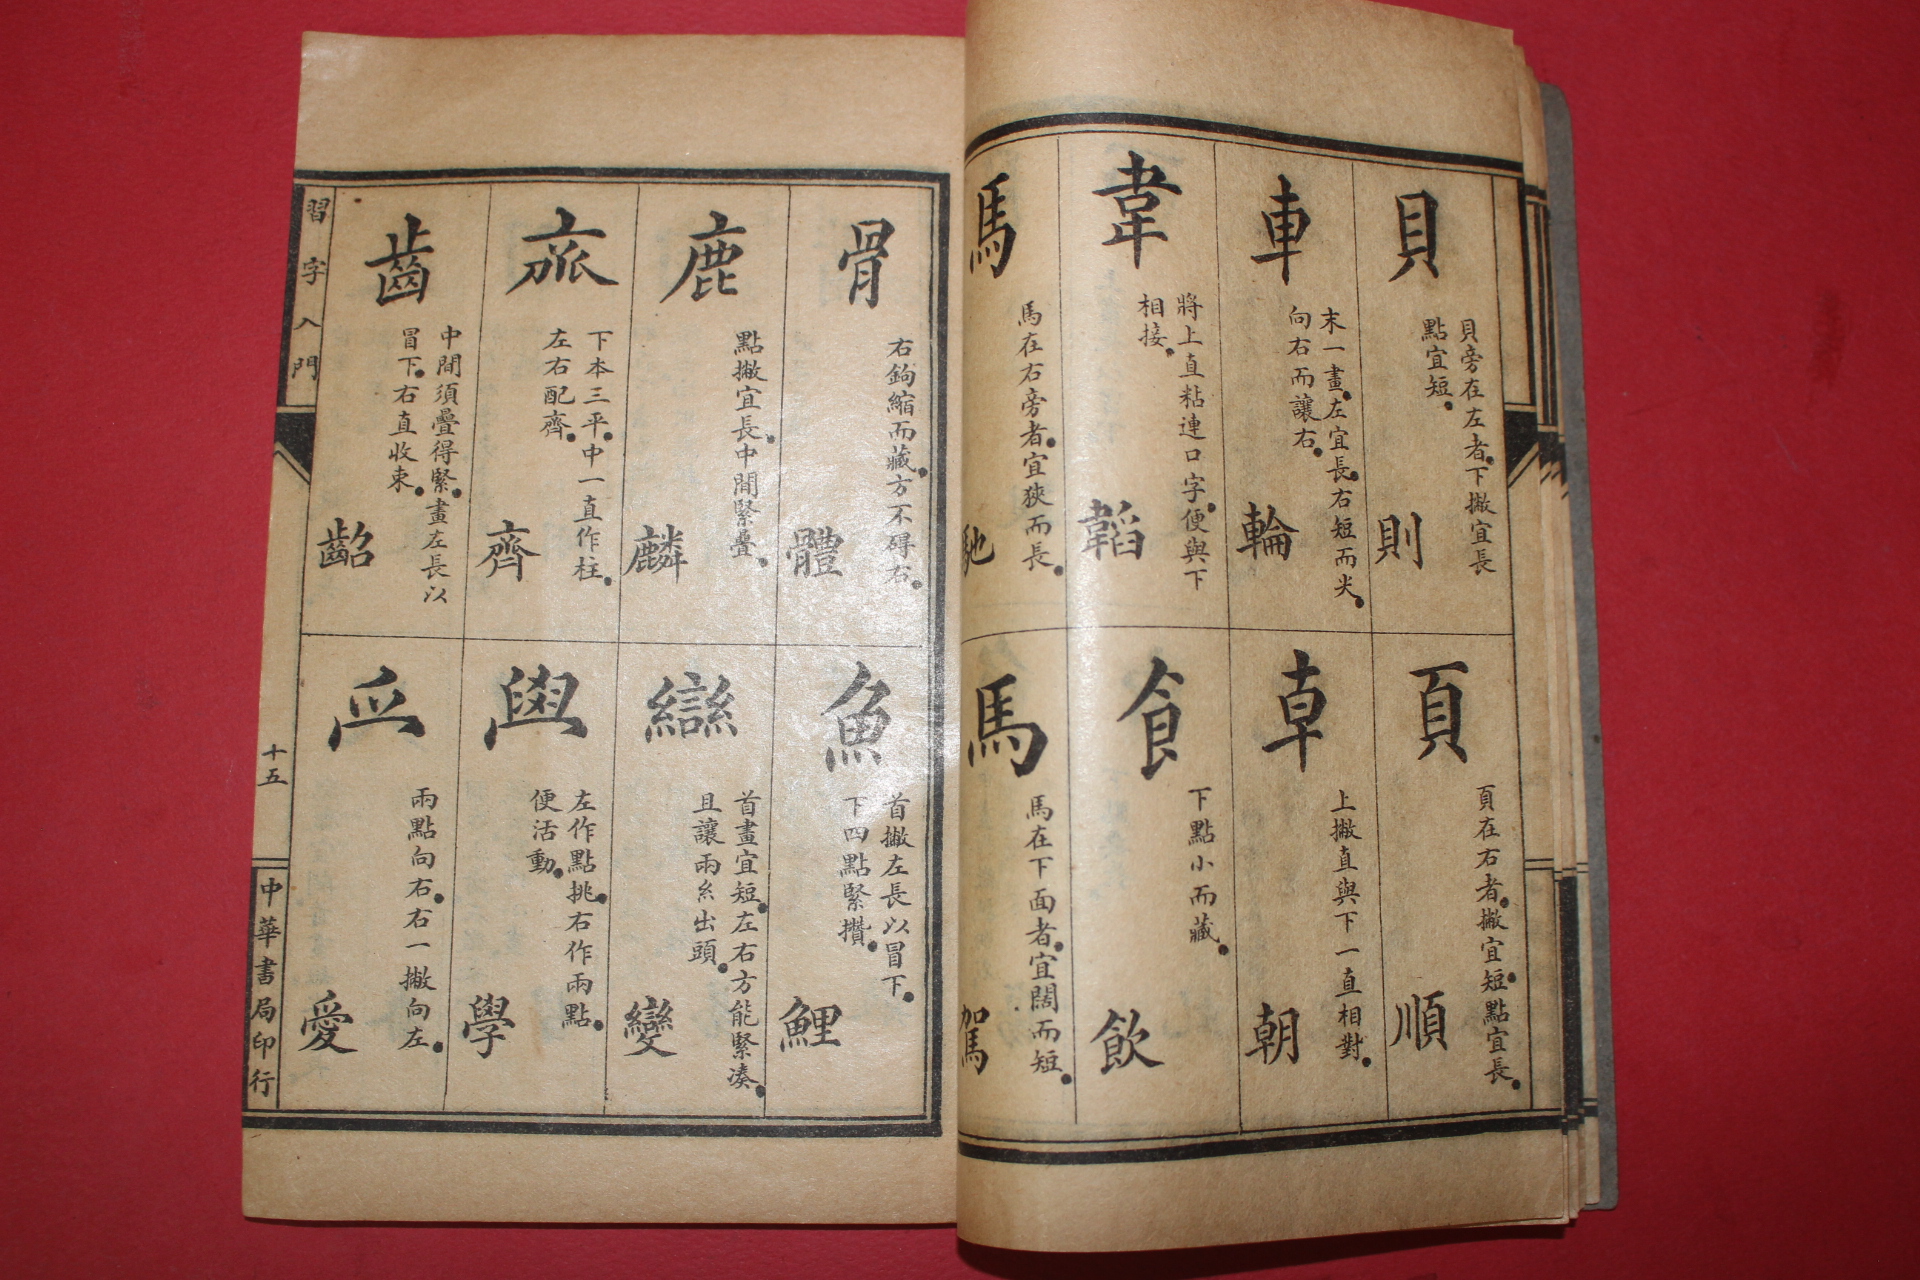 貝
貝旁在左者。下撇宜長
點宜短。
則
車
末一畫。左宜長。右短而尖。
向右而讓右。
輪
韋
將上直粘連口字。便與下
相接。
韜
馬
馬在右旁者。宜狹而長。
馳
頁
頁在右者。撇宜短。點宜長。
順
上撇直與下一直相對。
朝
飠
下點小而藏。
飲
馬
馬在下面者。宜闊而短。
駕
骨
右鉤縮而藏。方不碍右。
體
鹿
點撇宜長。中間緊疊。
麟
下本三平。中一直作柱。
左右配齊。
齊
齒
中間須疊得緊。畫左長以
冒下。右直收束。
齠
魚
首撇左長以冒下。
下四點緊攢。
鯉
䜌
首畫宜短。左右方能緊湊。
且讓兩糸出頭。
變
左作點挑。右作兩點。
便活動。
學
兩點向右。右一撇向左。
愛
習字入門
十五
中華書局印行